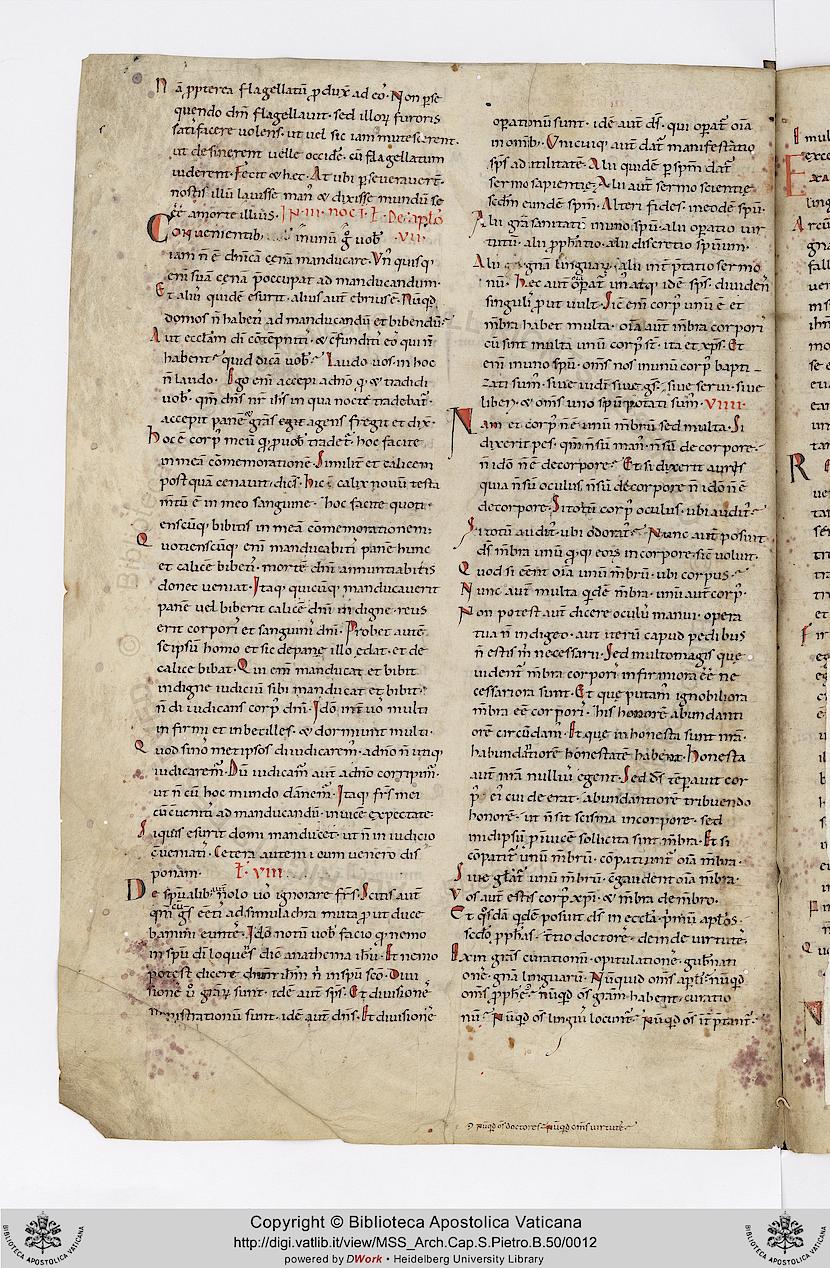 Nā ꝓpterea flagellatū ꝓduxͭ ad eoſ. Non ꝑſe
quendo dm̄ flagellauit. ſed illoꝝ furoriſ
ſatiſfacere uolenſ. ut uel ſic iam miteſcerent.
ut deſinerent uelle occidē. cū flagellatum
uiderent. Fecit & hec. At ubi ꝑſeuerauert̄.
noſtiſ illū lauiſſe manꝰ & dixiſſe mundū ſe
eē amorte illiuſ. IN III noct̄ L̄ De aptō
Conuenientibꝰ inunū g̊ uobꝰ VII
iam n̄ ē dn̄icā cenā manducare. Vnꝰ quiſqꝫ
em̄ ſuā cenā p̄occupat ad manducandum.
Et aliuſ quidē eſurit. aliuſ aut̄ ebriuſ ē. Nūqd
domoſ n̄ habetiſ ad manducandū et bibendū?
Aut eccl̄am dī cōtēpnitiſ. & cōfunditiſ eoſ qui n̄
habent? quid dicā uobꝰ? Laudo uoſ. in hoc
n̄ laudo. Ego em̄ accepi adn̄o qꝫ & tradidi
uobꝰ. qm̄ dn̄ſ nr̄ ih̄ſ in qua nocte tradebat᷑.
accepit panē & gr̄aſ agenſ fregit et dixͭ.
Hoc ē corpꝰ meū qꝫ ꝓ uobꝰ tradet᷑. hoc facite
in meā cōmemorationē. Similiter et calicem
poſtquā cenauit. dicſ. Hic calix nouū teſta
mentū ē in meo ſanguine. hoc facite quoti
enſcūqꝫ bibitiſ in meā cōmemorationem.
Quotienſcūqꝫ em̄ manducabitiſ panē hunc
et calicē bibetiſ. mortē dn̄i annuntiabitiſ
donec ueniat. Itaqꝫ quicūqꝫ manducauerit
panē uel biberit calicē dn̄i indigne. reuſ
erit corporiſ et ſanguiniſ dn̄i. Probet autē
ſeipſū homo et ſic depane illo edat. et de
calice bibat. Qui em̄ manducat et bibit
indigne iudiciū ſibi manducat et bibit.
n̄ diiudicanſ corpꝰ dn̄i. Ido int̄ uoſ multi
infirmi et inbecilleſ. & dormiunt multi.
Quod ſi noſmet ipſoſ diiudicarem᷒. adn̄o n̄ utiqꝫ
iudicarem᷒. Dū iudicam᷒ aut̄ adn̄o corripim᷒.
ut n̄ cū hoc mundo dānem᷒. Itaqꝫ fr̄ſ mei
cū cōuenitiſ ad manducandū. inuicē expectate.
Siquiſ eſurit domi manducet. ut n̄ in iudiciū
cōueniatiſ. Cetera autem cum uenero diſ
ponam. L̄ VIII
De ſpūalibꝰ aut̄ nolo uoſ ignorare fr̄ſ. Scitiſ aut̄
qm̄ cū gſ eetiſ ad ſimulachra muta ꝓut duce
bamini eunteſ. Ido notū uobꝰ facio qꝫ nemo
inſpū dī loquenſ dic̄ anathema ih̄u. Et nemo
poteſt dicere dn̄m ih̄m n̄ inſpū ſc̄o. Diui
ſioneſ ū gr̄aꝝ ſunt. idē aut̄ ſp̄ſ. Et diuiſioneſ
miniſtrationū ſunt. idē aut̄ dn̄ſ. Et diuiſioneſ
oꝑationū ſunt. idē aut̄ dſ̄. qui oꝑat᷑ oīa
in omībꝰ. Vnicuiqꝫ aut̄ dat᷑ manifeſtatio
ſp̄ſ ad utilitatē. Alii quidē ꝑ ſpm̄ dat᷑
ſermo ſapientię. Alii aut̄ ſermo ſcientię
ſecdm̄ eundē ſpm̄. Alteri fideſ. ineodē ſpū.
Alii gr̄a ſanitatū inuno ſpū. alii oꝑatio uir
tutū. alii ꝓph̄atio. alii diſcretio ſpūum.
Alii gn̄a linguaꝝ. alii int̄ꝑtatio ſermo
nū. Hec aut̄ oꝑat᷑ unꝰ atqꝫ idē ſp̄ſ. diuidenſ
ſinguliſ ꝓut uult. Sic̄ em̄ corpꝰ unū ē et
mb̄ra habet multa. oīa aut̄ mb̄ra corporiſ
cū ſint multa unū corpꝰ ſt̄. ita et xp̄ſ. Et
em̄ inuno ſpū. om̄ſ noſ inunū corpꝰ bapti
zati ſum᷒. ſiue iudei ſiue gſ. ſiue ſerui. ſiue
liberi. & om̄ſ uno ſpū potati ſum᷒. VIIII
Nam et corpꝰ n̄ ē unū mb̄rū ſed multa. Si
dixerit peſ. qm̄ n̄ ſū manꝰ. n̄ ſū de corpore.
n̄ ido n̄ ē decorpore? Et ſi dixerit auriſ
quia n̄ ſū oculuſ. n̄ ſū decorpore. n̄ ido n̄ ē
decorpore? Si totū corpꝰ oculuſ. ubi auditꝰ?
Si totū auditꝰ. ubi odoratꝰ? Nunc aut̄ poſuit
dſ̄ mb̄ra unū qꝫqꝫ eoꝝ incorpore. ſic̄ uoluit.
Quod ſi eēnt oīa unū mb̄rū. ubi corpuſ?
Nunc aut̄ multa qdē mb̄ra. unū aut̄ corpꝰ.
Non poteſt aut̄ dicere oculuſ manui. opera
tua n̄ indigeo. aut iterū capud pedibuſ
n̄ eſtiſ m̄ neceſſarii. Sed multomagiſ que
uident᷑ mb̄ra corporiſ infirmiora eē ne
ceſſariora ſunt. Et que putam᷒ ignobiliora
mb̄ra eē corporiſ. hiſ honorē abundanti
orē circūdam᷒. Et que inhoneſta ſunt nr̄a.
habundantiorē honeſtatē habent. Honeſta
aut̄ nr̄a nulliuſ egent. Sed dſ̄ tēperauit cor
pꝰ. ei cui deerat. abundantiorē tribuendo
honorē. ut n̄ ſit ſciſma incorpore. ſed
inidipſū ꝓ inuicē ſollicita ſint mb̄ra. Et ſi
cōpatit᷑ unū mb̄rū. cōpatiunt᷑ oīa mb̄ra.
Siue glat᷑ unū mb̄rū. cōgaudent oīa mb̄ra.
Voſ aut̄ eſtiſ corpꝰ xp̄i. & mb̄ra demb̄ro.
Et qſdā qdē poſuit dſ̄ in eccl̄a. p̄mū apl̄oſ.
ſecdo ꝓph̄aſ. t̄tio doctoreſ. deinde uirtuteſ.
Exin gr̄aſ curationū. opitulationeſ. gub̄nati
oneſ. gn̄a linguarū. Nūquid om̄ſ apl̄i? nūqd
om̄ſ ꝓph̄e? nūqd oſ̄ gr̄am habent curatio
nū? Nūqd oſ̄ linguiſ locunt᷑? Nūqd oſ̄ int̄p̄tant᷑?
nūqd oſ̄ doctoreſ? nūqd om̄ſ uirtuteſ?
BIBLIOTECA APOSTOLICA VATICANA
Copyright © Biblioteca Apostolica Vaticana
http://digi.vatlib.it/view/MSS_Arch.Cap.S.Pietro.B.50/0012
powered by DWork • Heidelberg University Library
BIBLIOTECA APOSTOLICA VATICANA